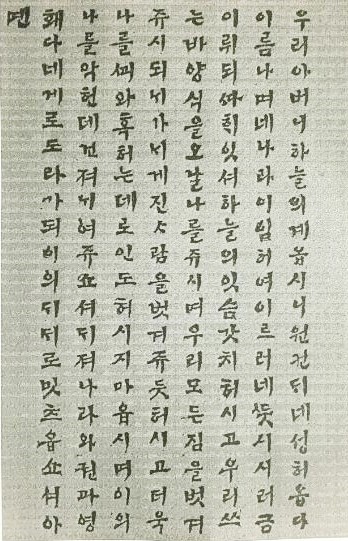 우리아버니하늘의계옵시니원컨디네성히옵다
이름나며네나라이임허여이르러네ᄯᅳᆺ시서러금
이뤼되ᄯᅡ희잇셔하늘의잇슴갓치허시고우리쓰
는바양식을오날나를쥬시며우리모든짐을벗겨
쥬시되니가니게진사람을벗겨쥬듯허시고더욱
나를ᄭᅬ와혹허는데로인도허시지마옵시며이의
나를악헌데건져니여쥬쇼셔디져나라와권파영
홰다네게로도라가되비의디디로밋츠옵쇼셔아
멘